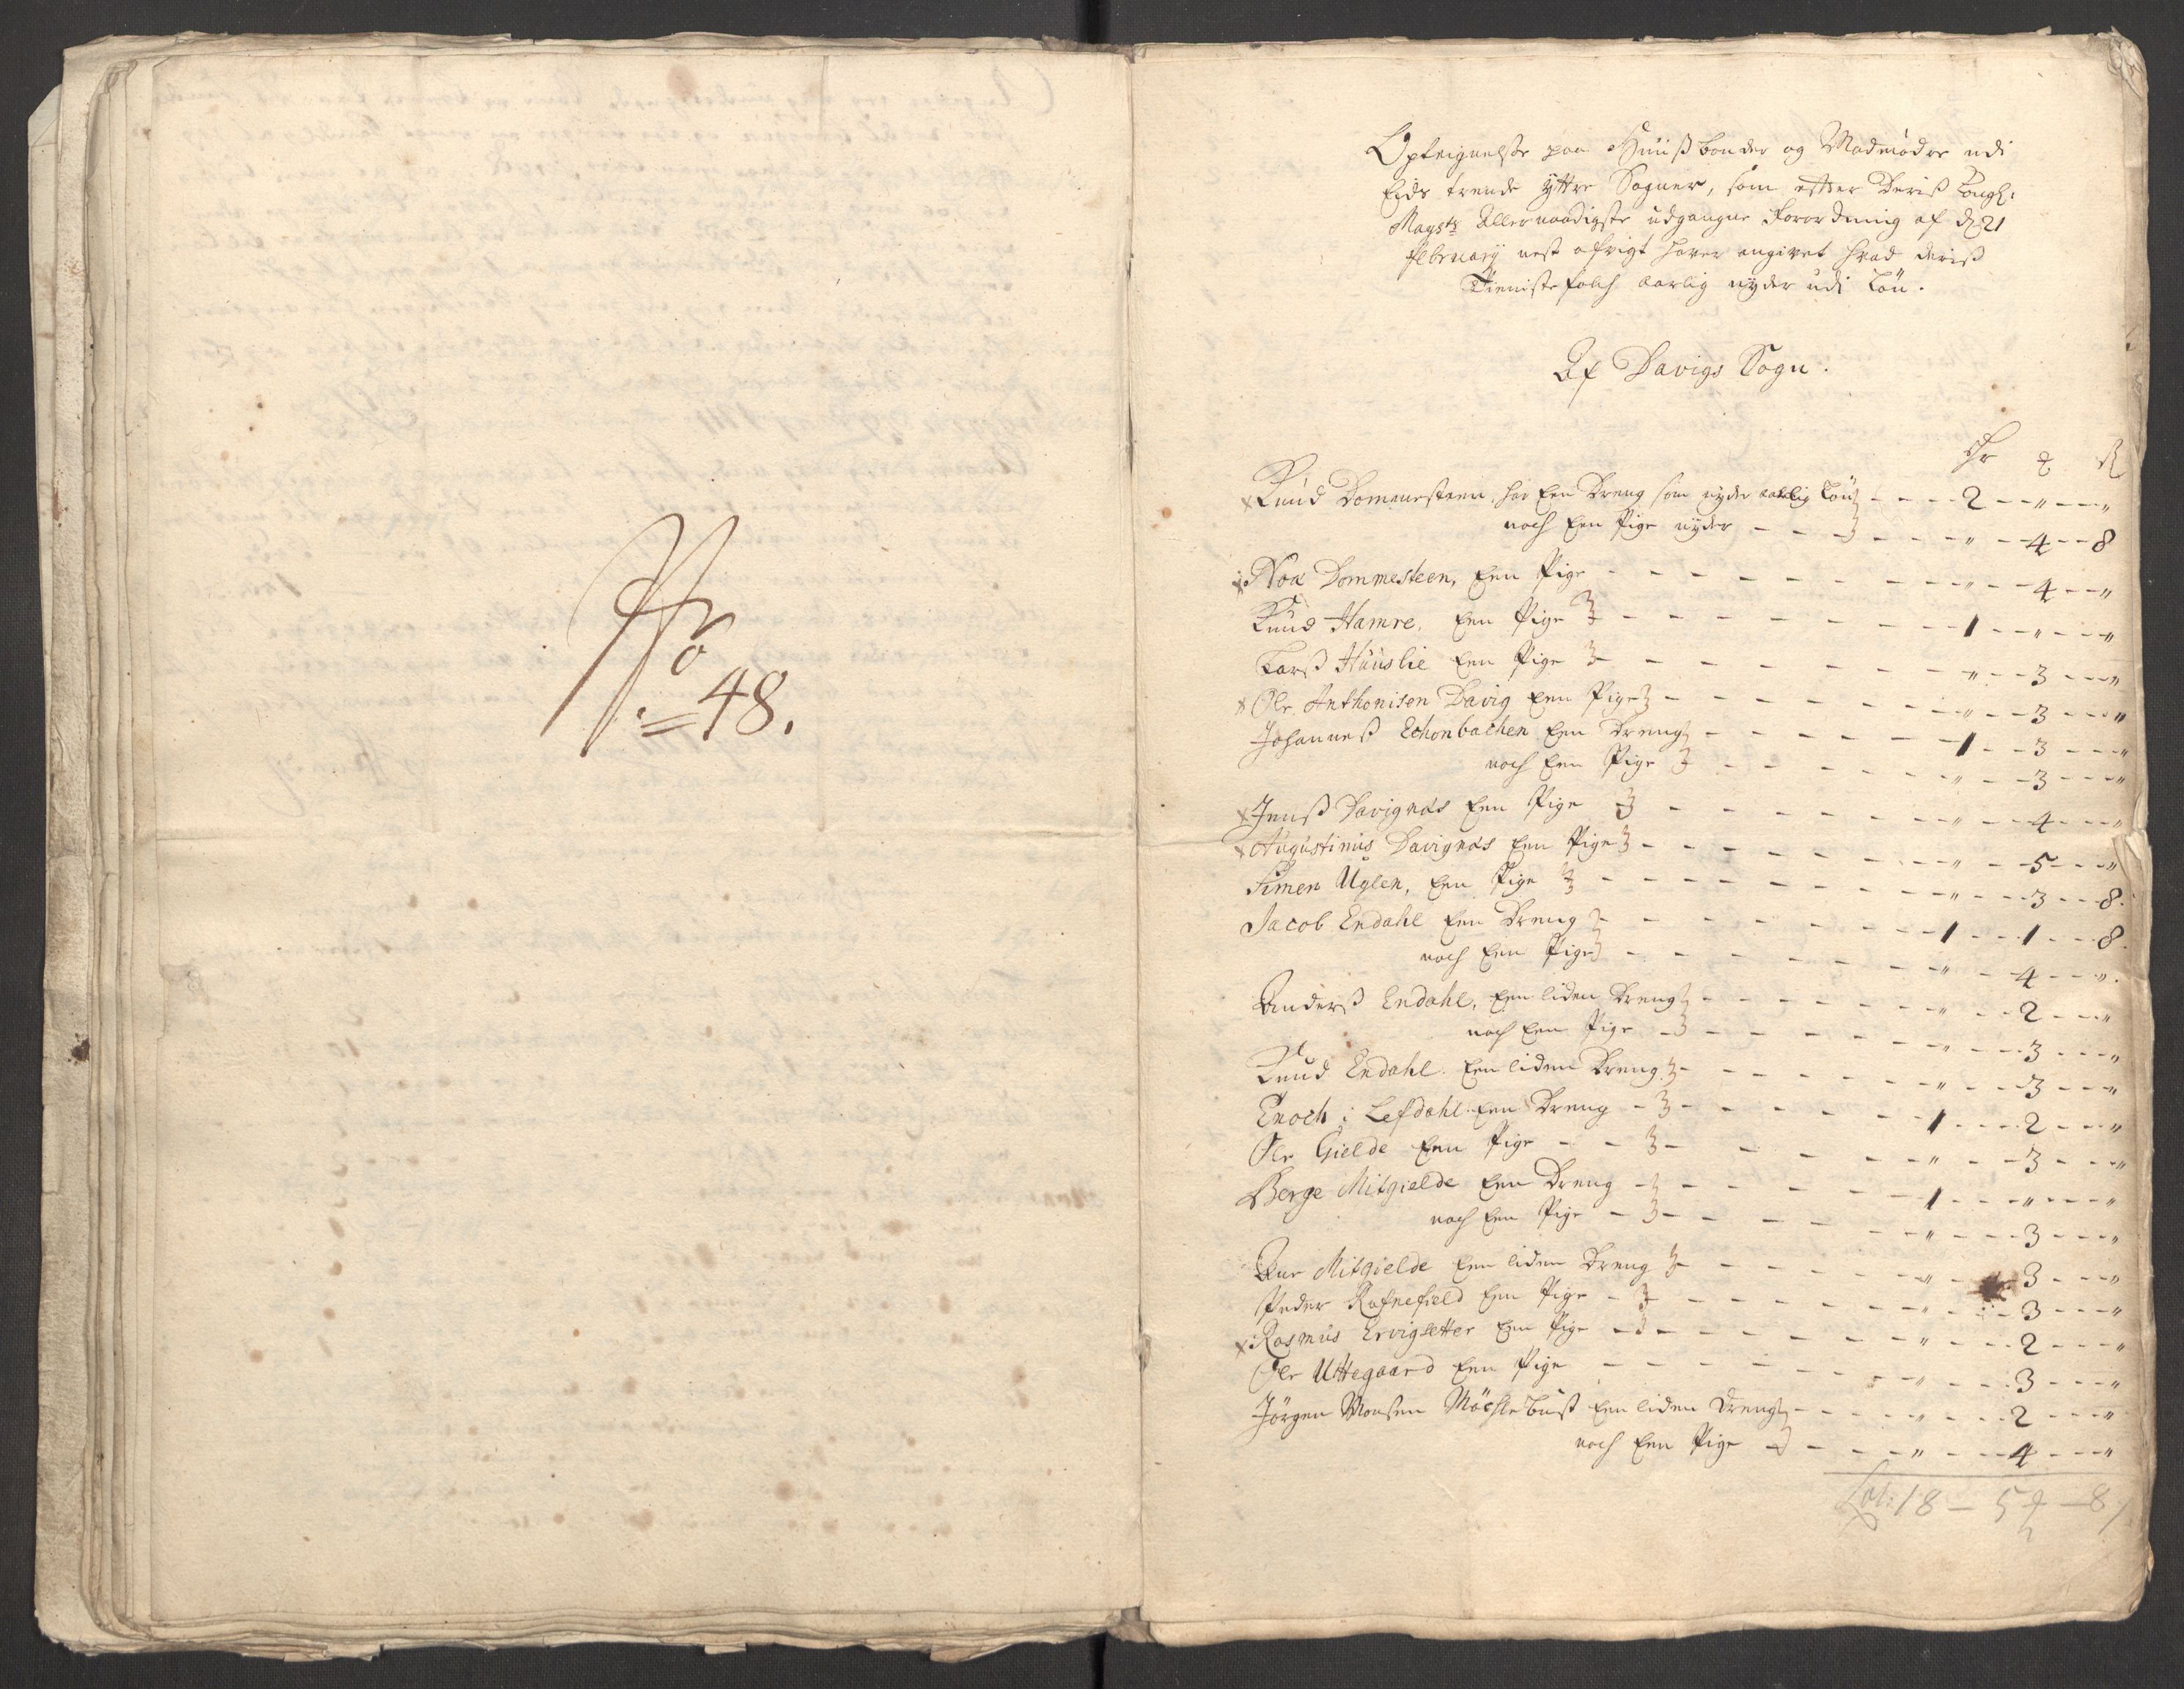 No
48.
Opteignelse paa Huußbonder og Madmødre udi
Eids trende Ÿttre Sogner, som efter Deris Kongl:
Mayts Allernaadigste udgangne Forordning af d: 21
februarij nest afvigt haver angivet hvad deris
Tieniste folch aarlig nyder udi Løn.
Af Davigs Sogn.
Dr ʒ ß
Knud Dommesteen, har Een Dreng som nyder aarlig Løn - - - 2 - - " - - "
noch Een Pige nyder - - - " - 4 - - 8
Noæ Dommesteen, Een Pige - - - " - - 4 - - "
Knud Hamre. Een Pige - - - 1 - - " - - "
Larß Huuslie Een Pige - - - " - - 3 - - "
Ole Anthonisen Davig Een Pige - - - " - - 3 - - "
Johanneß Echonbachen Een Dreng - - - 1 - - 3 - - "
noch Een Pige - - - " - - 3 - - "
Jenß Davignæs Een Pige - - - " - - 4 - - "
Augustinus Davignæs Een Pige - - - " - - 5 - - "
Simen Uglen, Een Pige - - - " - - 3 - - 8.
Jacob Endahl Een Dreng - - - 1 - - 1 - - 8.
noch Een Pige - - - " - 4 - - ".
Anderß Endahl, Een liden Dreng - - - " - - 2 - - "
noch Een Pige - - - " - - 3 - - "
Knud Endahl. Een liden Dreng - - - " - - 3 - - "
Enoch i Lefdahl Een Dreng - - - 1 - - 2 - - "
Ole Gielde Een Pige - - - " - - 3 - - "
Berge Mitgielde Een Dreng - - - 1 - - " - - "
noch Een Pige - - - " - - 3 - - "
Ane Mitgielde Een liden Dreng - - - " - - 3 - - "
Peder Rafnefield Een Pige - - - " - - 3 - - "
Rasmus Ervigsetter Een Pige - - - " - - 2 - - "
Ole Uttegaard Een Pige - - - " - - 3 - - "
Jørgen Monsen Møchlebust Een liden Dreng - - - " - - 2 - - "
noch Een Pige - - - " - - 4 - - "
Lat: 18 - 5 ʒ - 8